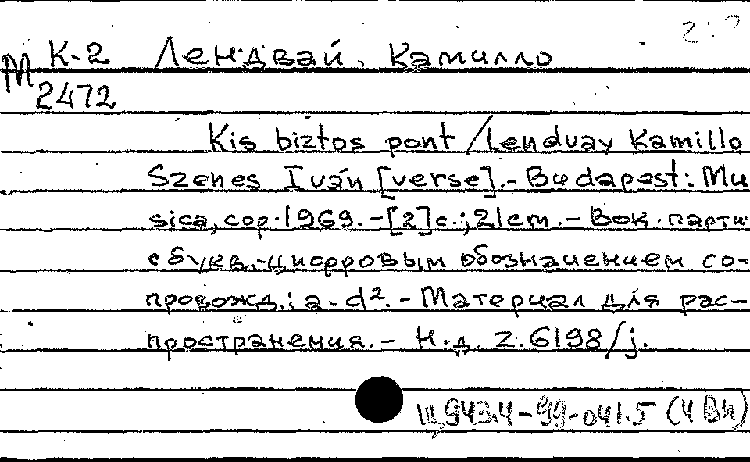 М К-2 Лендвай, Камилло
2472
Kis biztos pont / Lendvay Kamillo
Szenes Iván [verse]. - Budapest: Mu
sica, cop. 1969. - [2] с.; 21 cm. - Вок. парти
с букв.-цифровым обозначением со-
провожд.: a-d². - Материал для рас-
пространения. - Н.д. Z.6198/j.
Щ943.4-99-041.5 (4Вн)